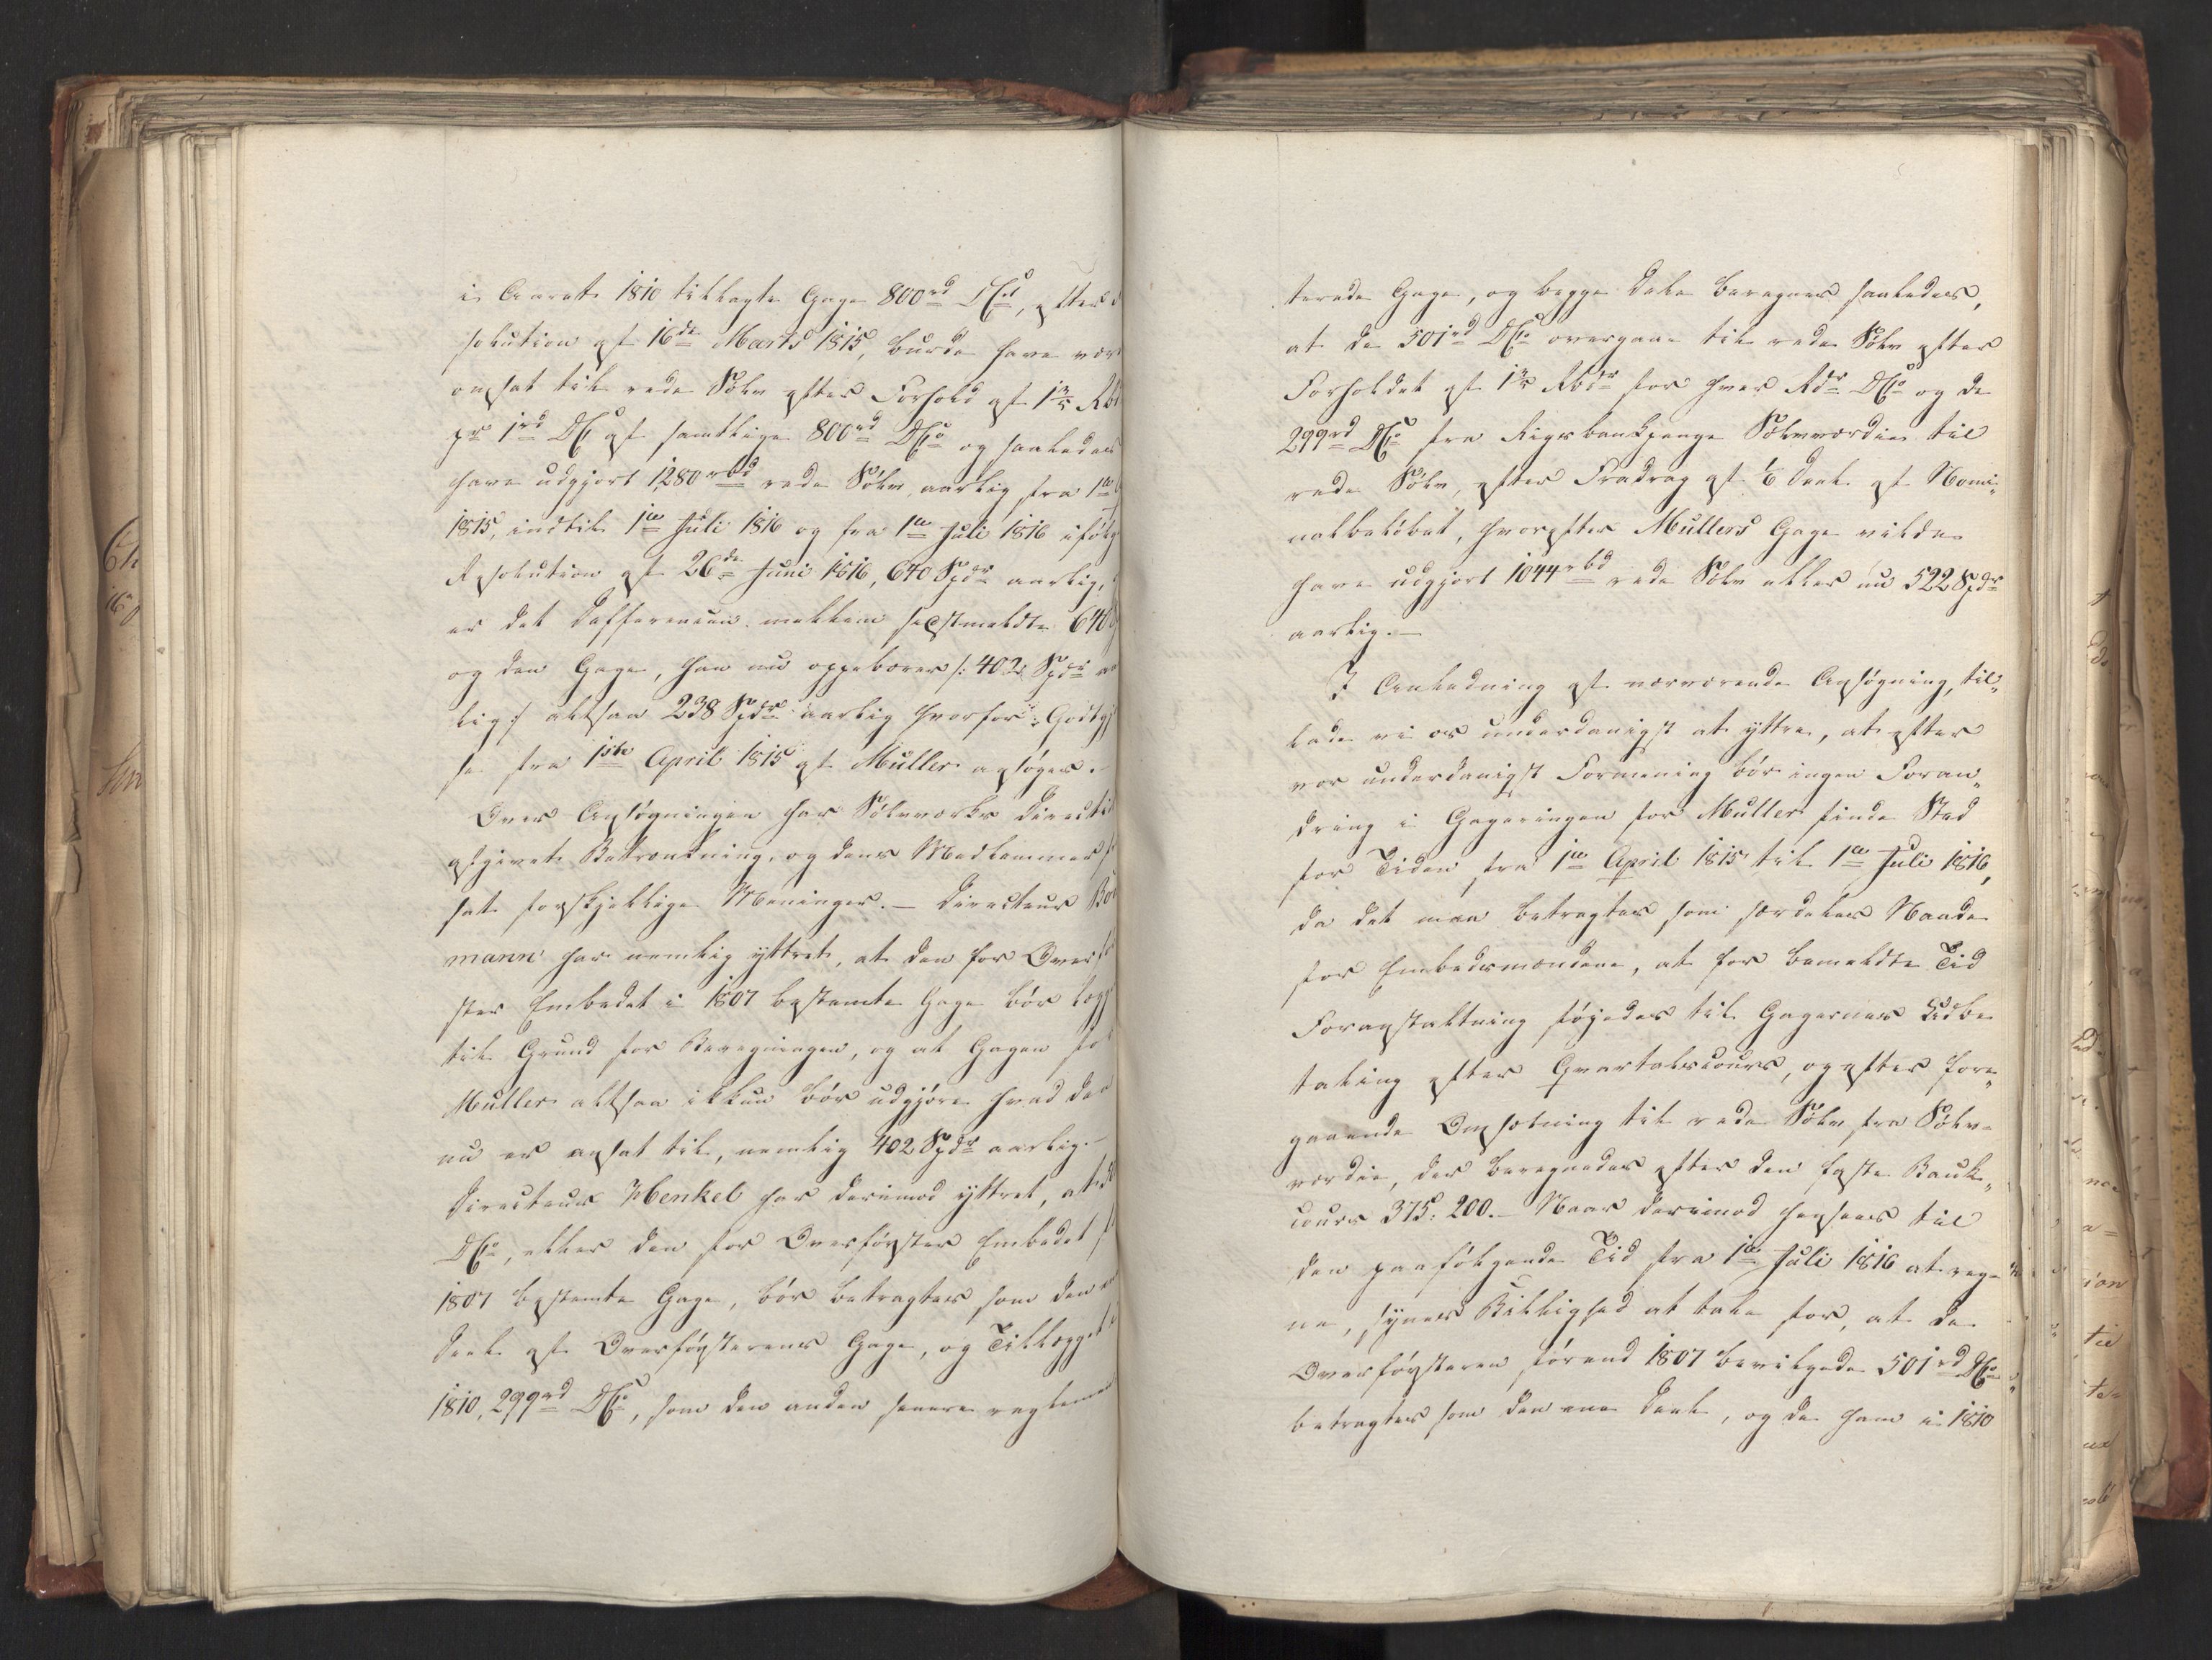 i Aaret 1810 tillagte Gage 800rd DCo, efter
solution af 16de Marts 1815, burde have vær
ansat til rede Sølv efter Forhold af 1 3/5 Rb
pr 1rd DC af samtlige 800rd DCo og saaledes
have udgjort 1280 rbd rede Sølv aarlig fra 1te
1815, indtil 1te Juli 1816 og fra 1te Juli 1816 ifølg
Resolution af 26de Juni 1816, 640 Spdr aarlig,
er det Differencen mellem sidstmeldte 640
og den Gage, han nu oppebærer /: 402 Spdr aa
lig :/ altsaa 238 Spdr aarlig hvorfor Godtgj
se fra 1ste April 1815 af Müller ansøges.
Over Ansøgningen har Sølvværks Directi
afgivet Betænkning, og dens Medlemmer
sat forskjellige Meninger. — Directeur Bö
mann har nemlig yttret, at den for Overfö
ster Embedet i 1807 bestemte Gage bör lægg
til Grund for Beregningen, og at Gagen fo
Müller altsaa ikkun bör udgjöre hvad den
nu er ansat til, nemlig 402 Spdr aarlig. —
Directeur Henkel har derimod yttret, at d
DCo, eller den for Overförster Embedet
1807 bestemte Gage, bör betragtes som den en
Deel af Overförsterens Gage, og Tillægget
1810, 299rd DCo, som den anden senere reglem
terede Gage, og begge Dele beregnes saaledes,
at de 501rd DCo overgaae til rede Sølv efter
Forholdet af 1 3/5 Rbdr for hver Rdr DCo og de
299rd DCo fra Rigsbankpenge Sølvværdie til
rede Sølv, efter Fradrag af 1/6 Deel af Nomi„
nalbeløbet, hvorefter Müllers Gage vilde
have udgjort 1044 rbd rede Sølv eller nu 522 Spdr
aarlig. —
I Anledning af nærværende Ansøgning, til„
lade vi os underdanigst at yttre, at efter
vor underdanigst Formening bör ingen Foran„
dring i Gageringen for Müller finde Sted
for Tiden fra 1te April 1815 til 1te Juli 1816,
da det maa betragtes som særdeles Naade
for Embedsmændene, at for bemeldte Tid
Foranstaltning föjedes til Gagernes Udbe
taling efter Qvartalscours, og efter fore„
gaaende Omsætning til rede Sølv fra Sølv-
værdie, der beregnedes efter den faste Bank„
cours 375: 200. — Naar derimod hensees til
den paafølgende Tid fra 1te Juli 1816 at reg
ne, synes Billighed at tale for, at de
Overförsteren förend 1807 bevilgede 501rd DCo
betragtes som den ene Deel, og de ham i 1810